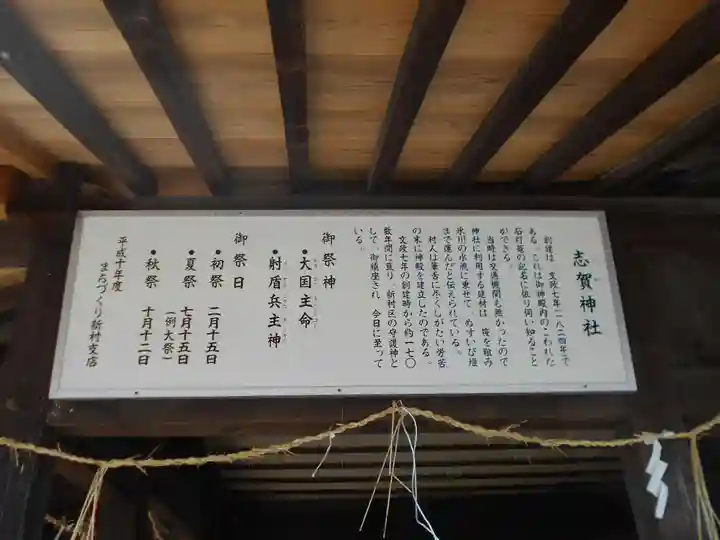 志賀神社
創建は、文政七年(一八二四年)で
ある。これは御神殿内のこわれた
石灯篭の記名に依り伺い知ること
ができる。
当時は交通機関も無かったので
神社に利用する建材は、筏を組み
氷川の水流に乗せて、ぬすいび堰
まで運んだと伝えられている。
村人は筆舌に尽くしがたい労苦
の末に神殿を建立したのである。
文政七年の創建時から約一七〇
数年間に亘り、新村区の守護神と
して、御鎮座され、今日に至って
いる。
御祭神
・大国主命
・射盾兵主神
御祭日
・初祭 二月十五日
・夏祭 七月十五日
(例大祭)
・秋祭 十月十二日
平成十年度
まちづくり新村支店